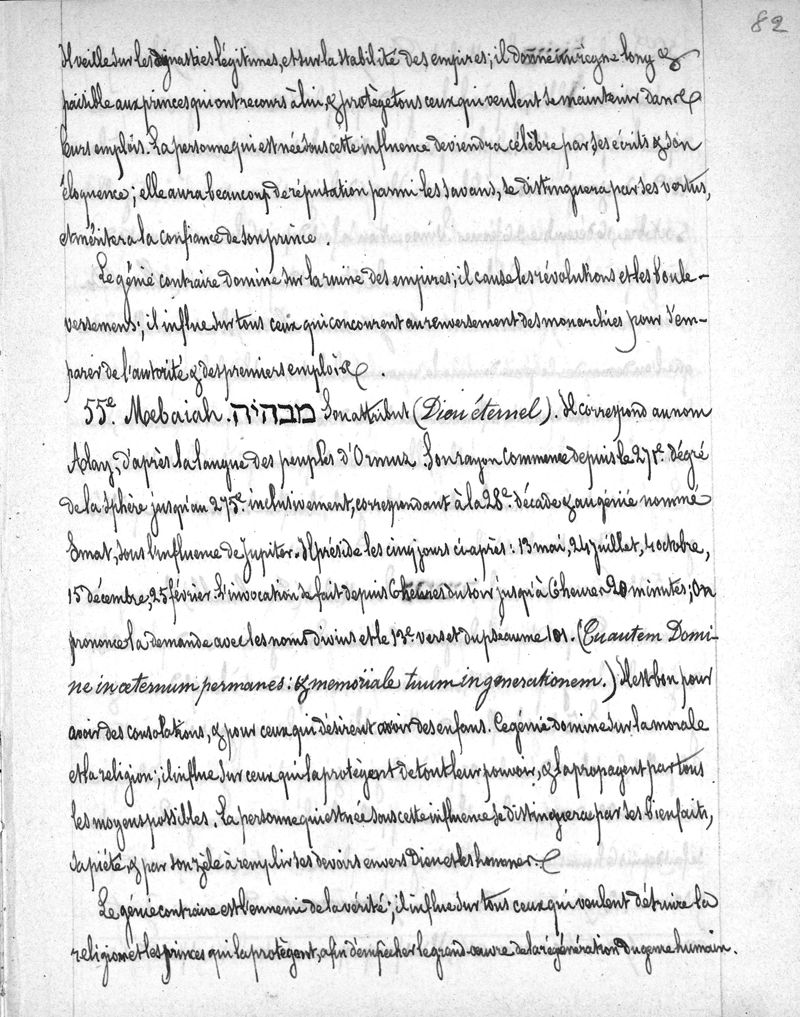 82
Il veille sur les dynasties légitimes, et sur la stabilité des empires; il donne un règne long &
paisible aux princes qui ont recours à lui, & protège tous ceux qui veulent se maintenir dans
leurs emplois. La personne qui est née sous cette influence deviendra célèbre par ses écrits & son
éloquence; elle aura beaucoup de réputation parmi les savans, se distinguera par ses vertus,
et méritera la confiance de son prince.
Le génie contraire domine sur la ruine des empires; il cause les révolutions et les boule-
versemens; il influe sur tous ceux qui concourent au renversement des monarchies pour s'em-
parer de l'autorité & des premiers emplois.
55e. Mebaiah. מבהיה Son attribut (Dieu éternel). Il correspond au nom
Alay, d'après la langue des peuples d'Ormuz. Son rayon commence depuis le 271e. dégré
de la sphère jusqu'au 275e. inclusivement, correspondant à la 28e. décade & au génie nommé
Smat, sous l'influence de Jupiter. Il préside les cinq jours ci-après: 13 mai, 24 juillet, 4 octobre,
15 décembre, 25 février. L'invocation se fait depuis 6 heures du soir jusqu'à 6 heures 20 minutes; on
prononce la demande avec les noms divins et le 13e. verset du pséaume 101. (Tu autem Domi-
ne in œternum permanes: & memoriale tuum in generationem.) Il est bon pour
avoir des consolations, & pour ceux qui désirent avoir des enfans. Ce génie domine sur la morale
et la religion; il influe sur ceux qui la protègent de tout leur pouvoir, & la propagent par tous
les moyens possibles. La personne qui est née sous cette influence se distinguera par ses bienfaits,
sa piété, & par son zèle à remplir ses devoirs envers Dieu et les hommes.
Le génie contraire est l'ennemi de la vérité; il influe sur tous ceux qui veulent détruire la
religion et les princes qui la protègent, afin d'empêcher le grand-œuvre de la régénération du genre humain.